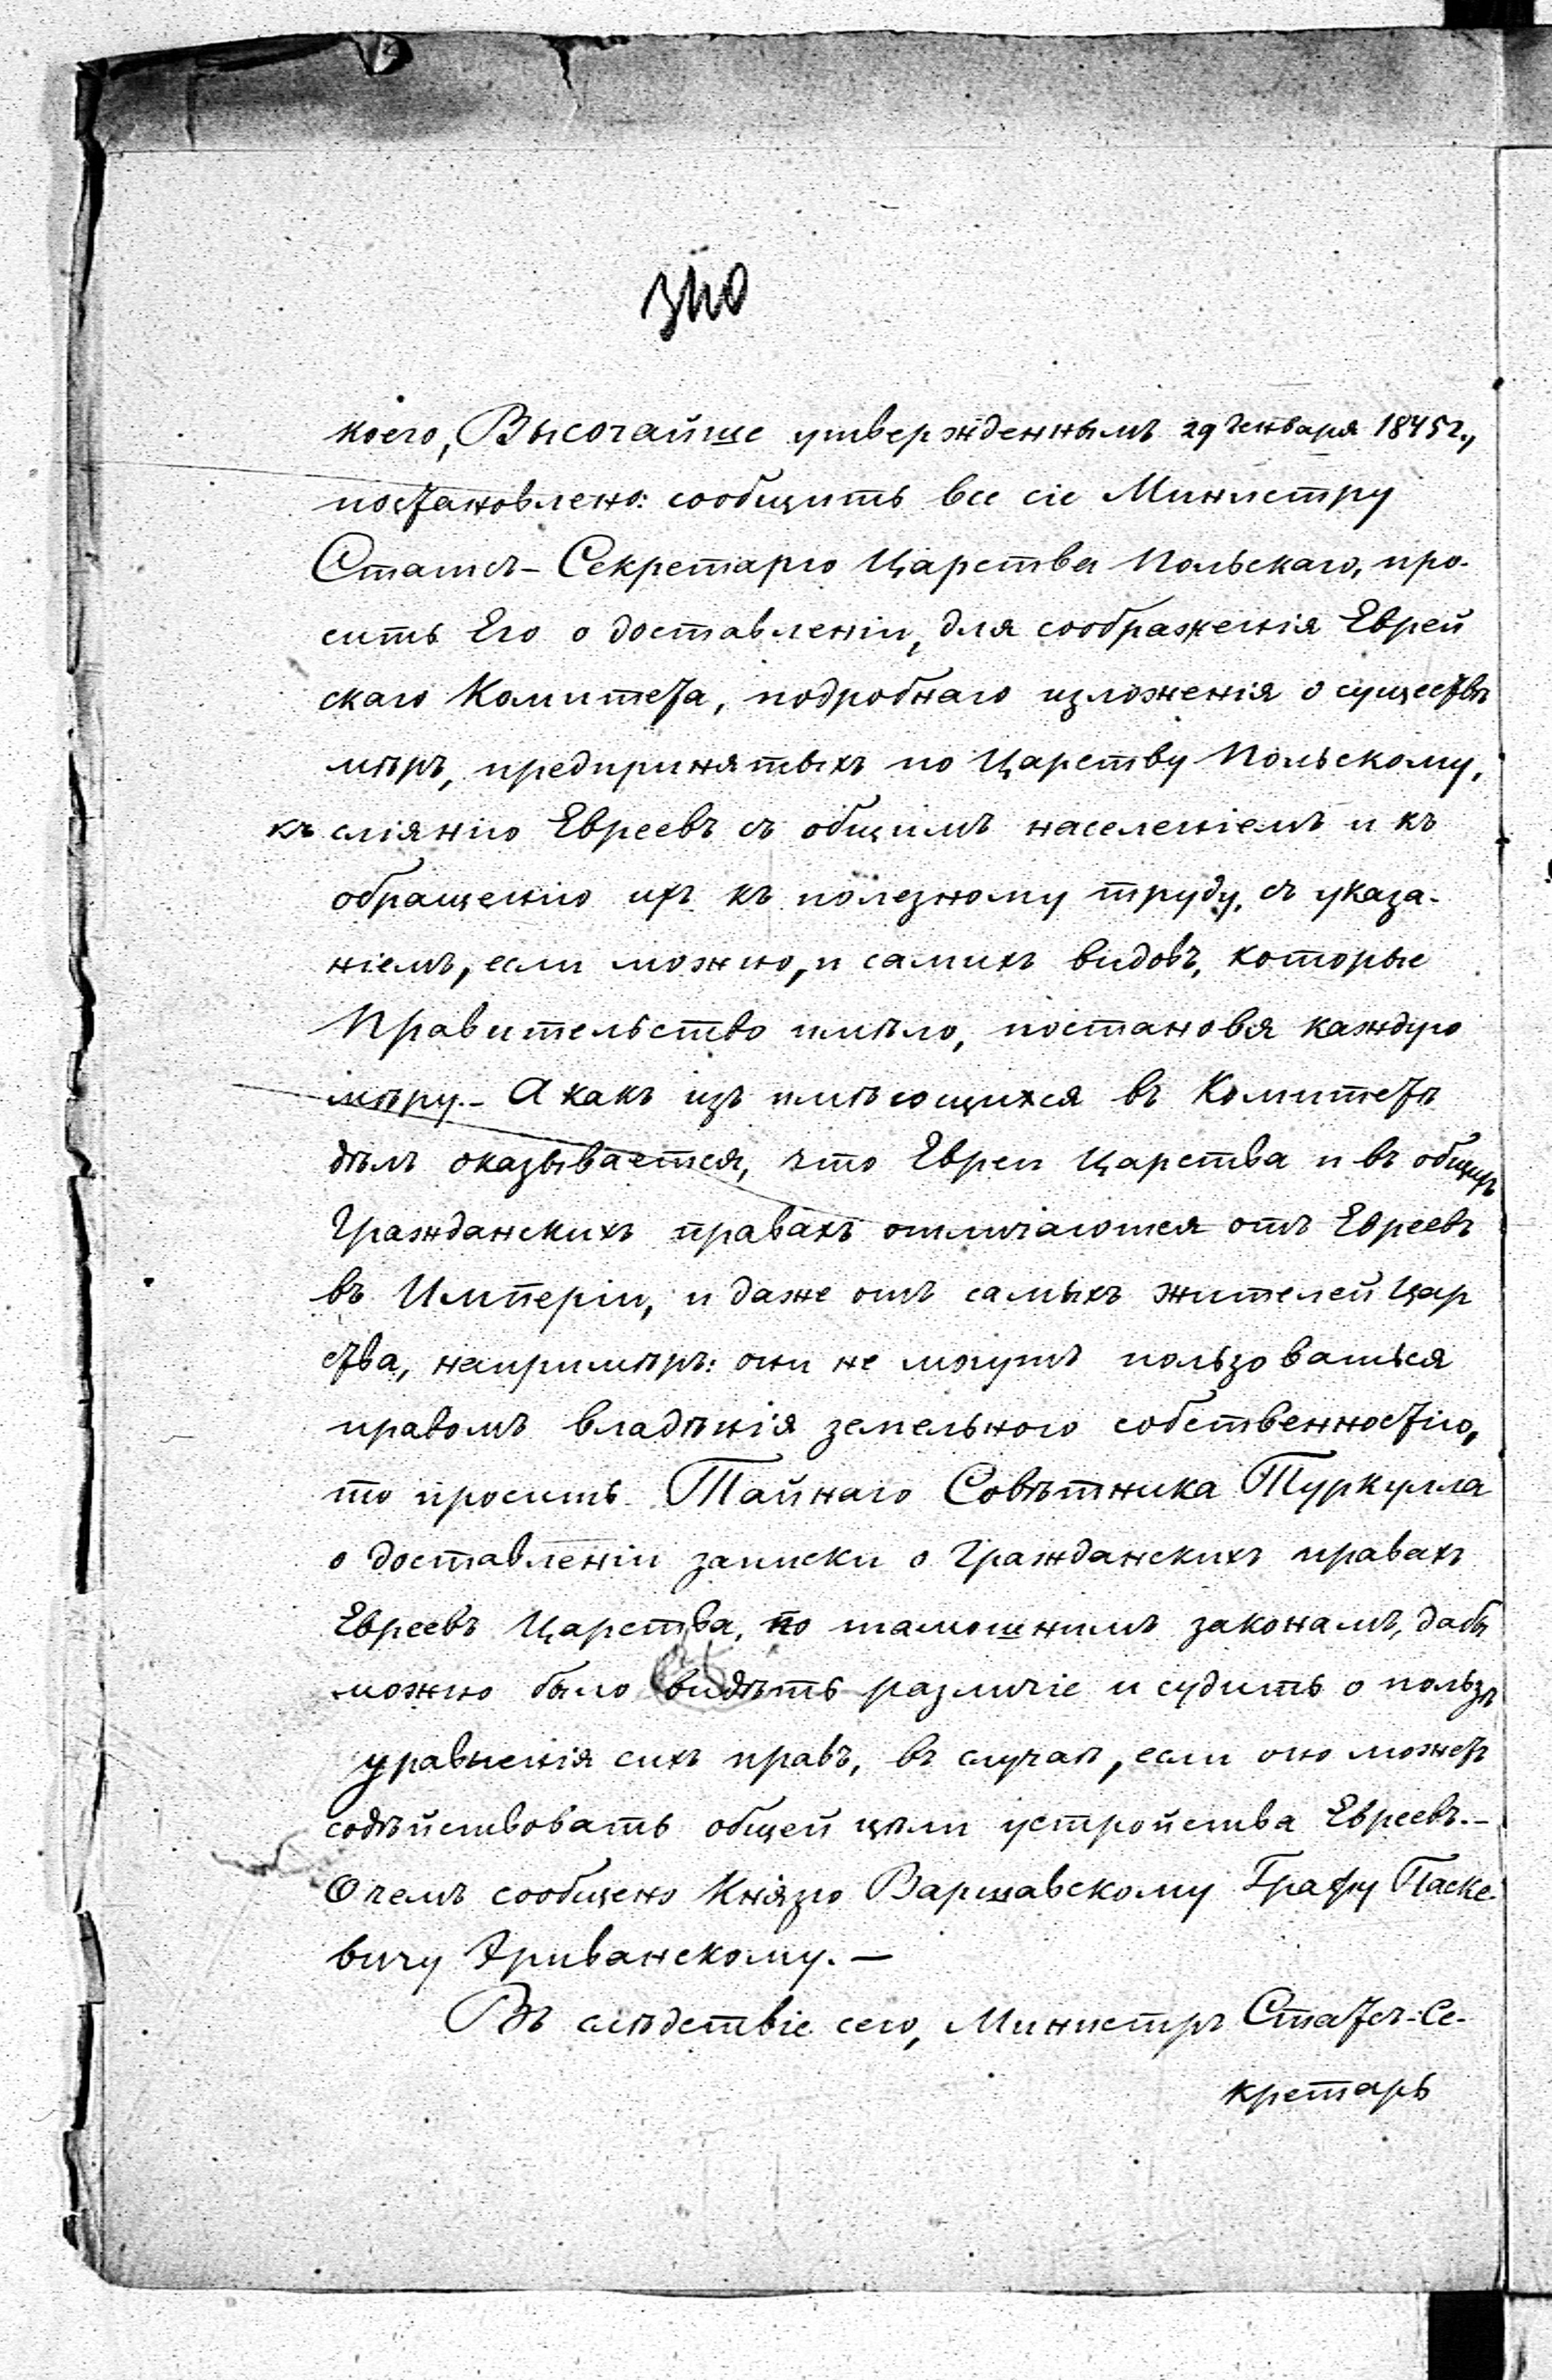 коего, Высочайше утвержденнымъ 29 Генваря 1845 г.,
постановлено: сообщить все сіе Министру
Статсъ-Секретарю Царства Польскаго, про-
сить Его о доставленіи, для соображенія Еврей
скаго Комитета, подробнаго изложенія о существѣ
мѣръ, предпринятыхъ по Царству Польскому,
къ сліянію Евреевъ съ общимъ населеніемъ и къ
обращенію ихъ къ полезному труду, съ указа-
ніемъ, если можно, и самихъ видовъ, которые
Правительство имѣло, постановя каждую
мѣру.- А какъ изъ имѣющихся въ Комитетѣ
дѣлъ оказывается, что Евреи Царства и въ общихъ
Гражданскихъ правахъ отличаются отъ Евреевъ
въ Имперіи, и даже отъ самыхъ жителей Цар
ства, напримѣръ: они не могутъ пользоваться
правомъ владѣнія земельною собственностію,
то просить Тайнаго Совѣтника Туркулла
о доставленіи записки о Гражданскихъ правахъ
Евреевъ Царства, по тамошнимъ законамъ, дабы
можно было видѣть различіе и судить о пользѣ
уравненія сихъ правъ, въ случаѣ, если оно можетъ
содѣйствовать общей цѣли устройства Евреевъ.-
О чемъ сообщено Князю Варшавскому Графу Паске-
вичу Эриванскому.-
Въ слѣдствіе сего, Министръ Статсъ-Се-
кретарь